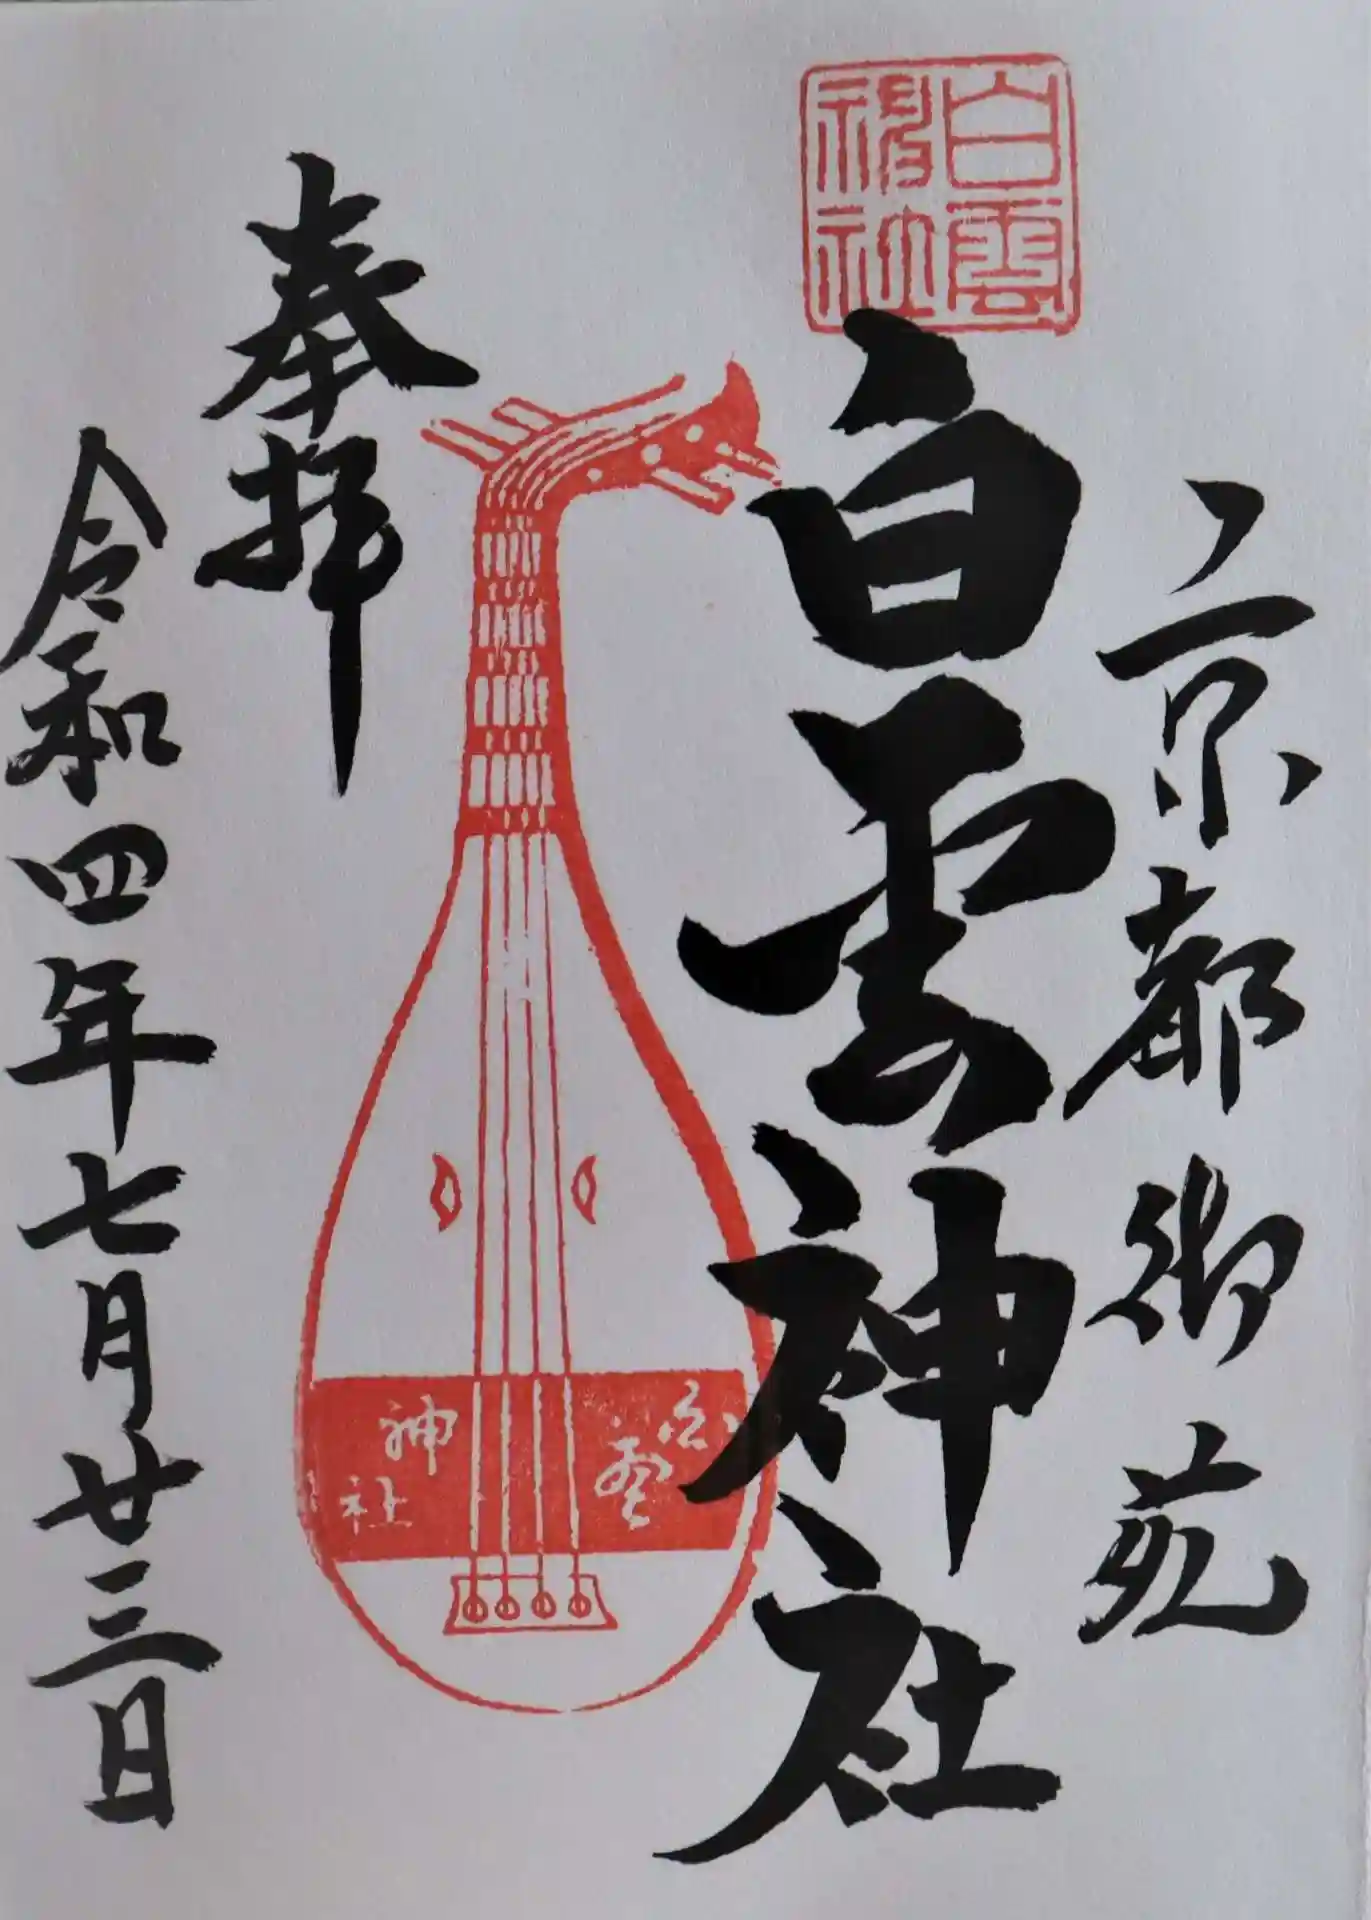 京都御苑
白雲神社
白雲
神社
白雲
神社
奉拝
令和四年七月廿三日